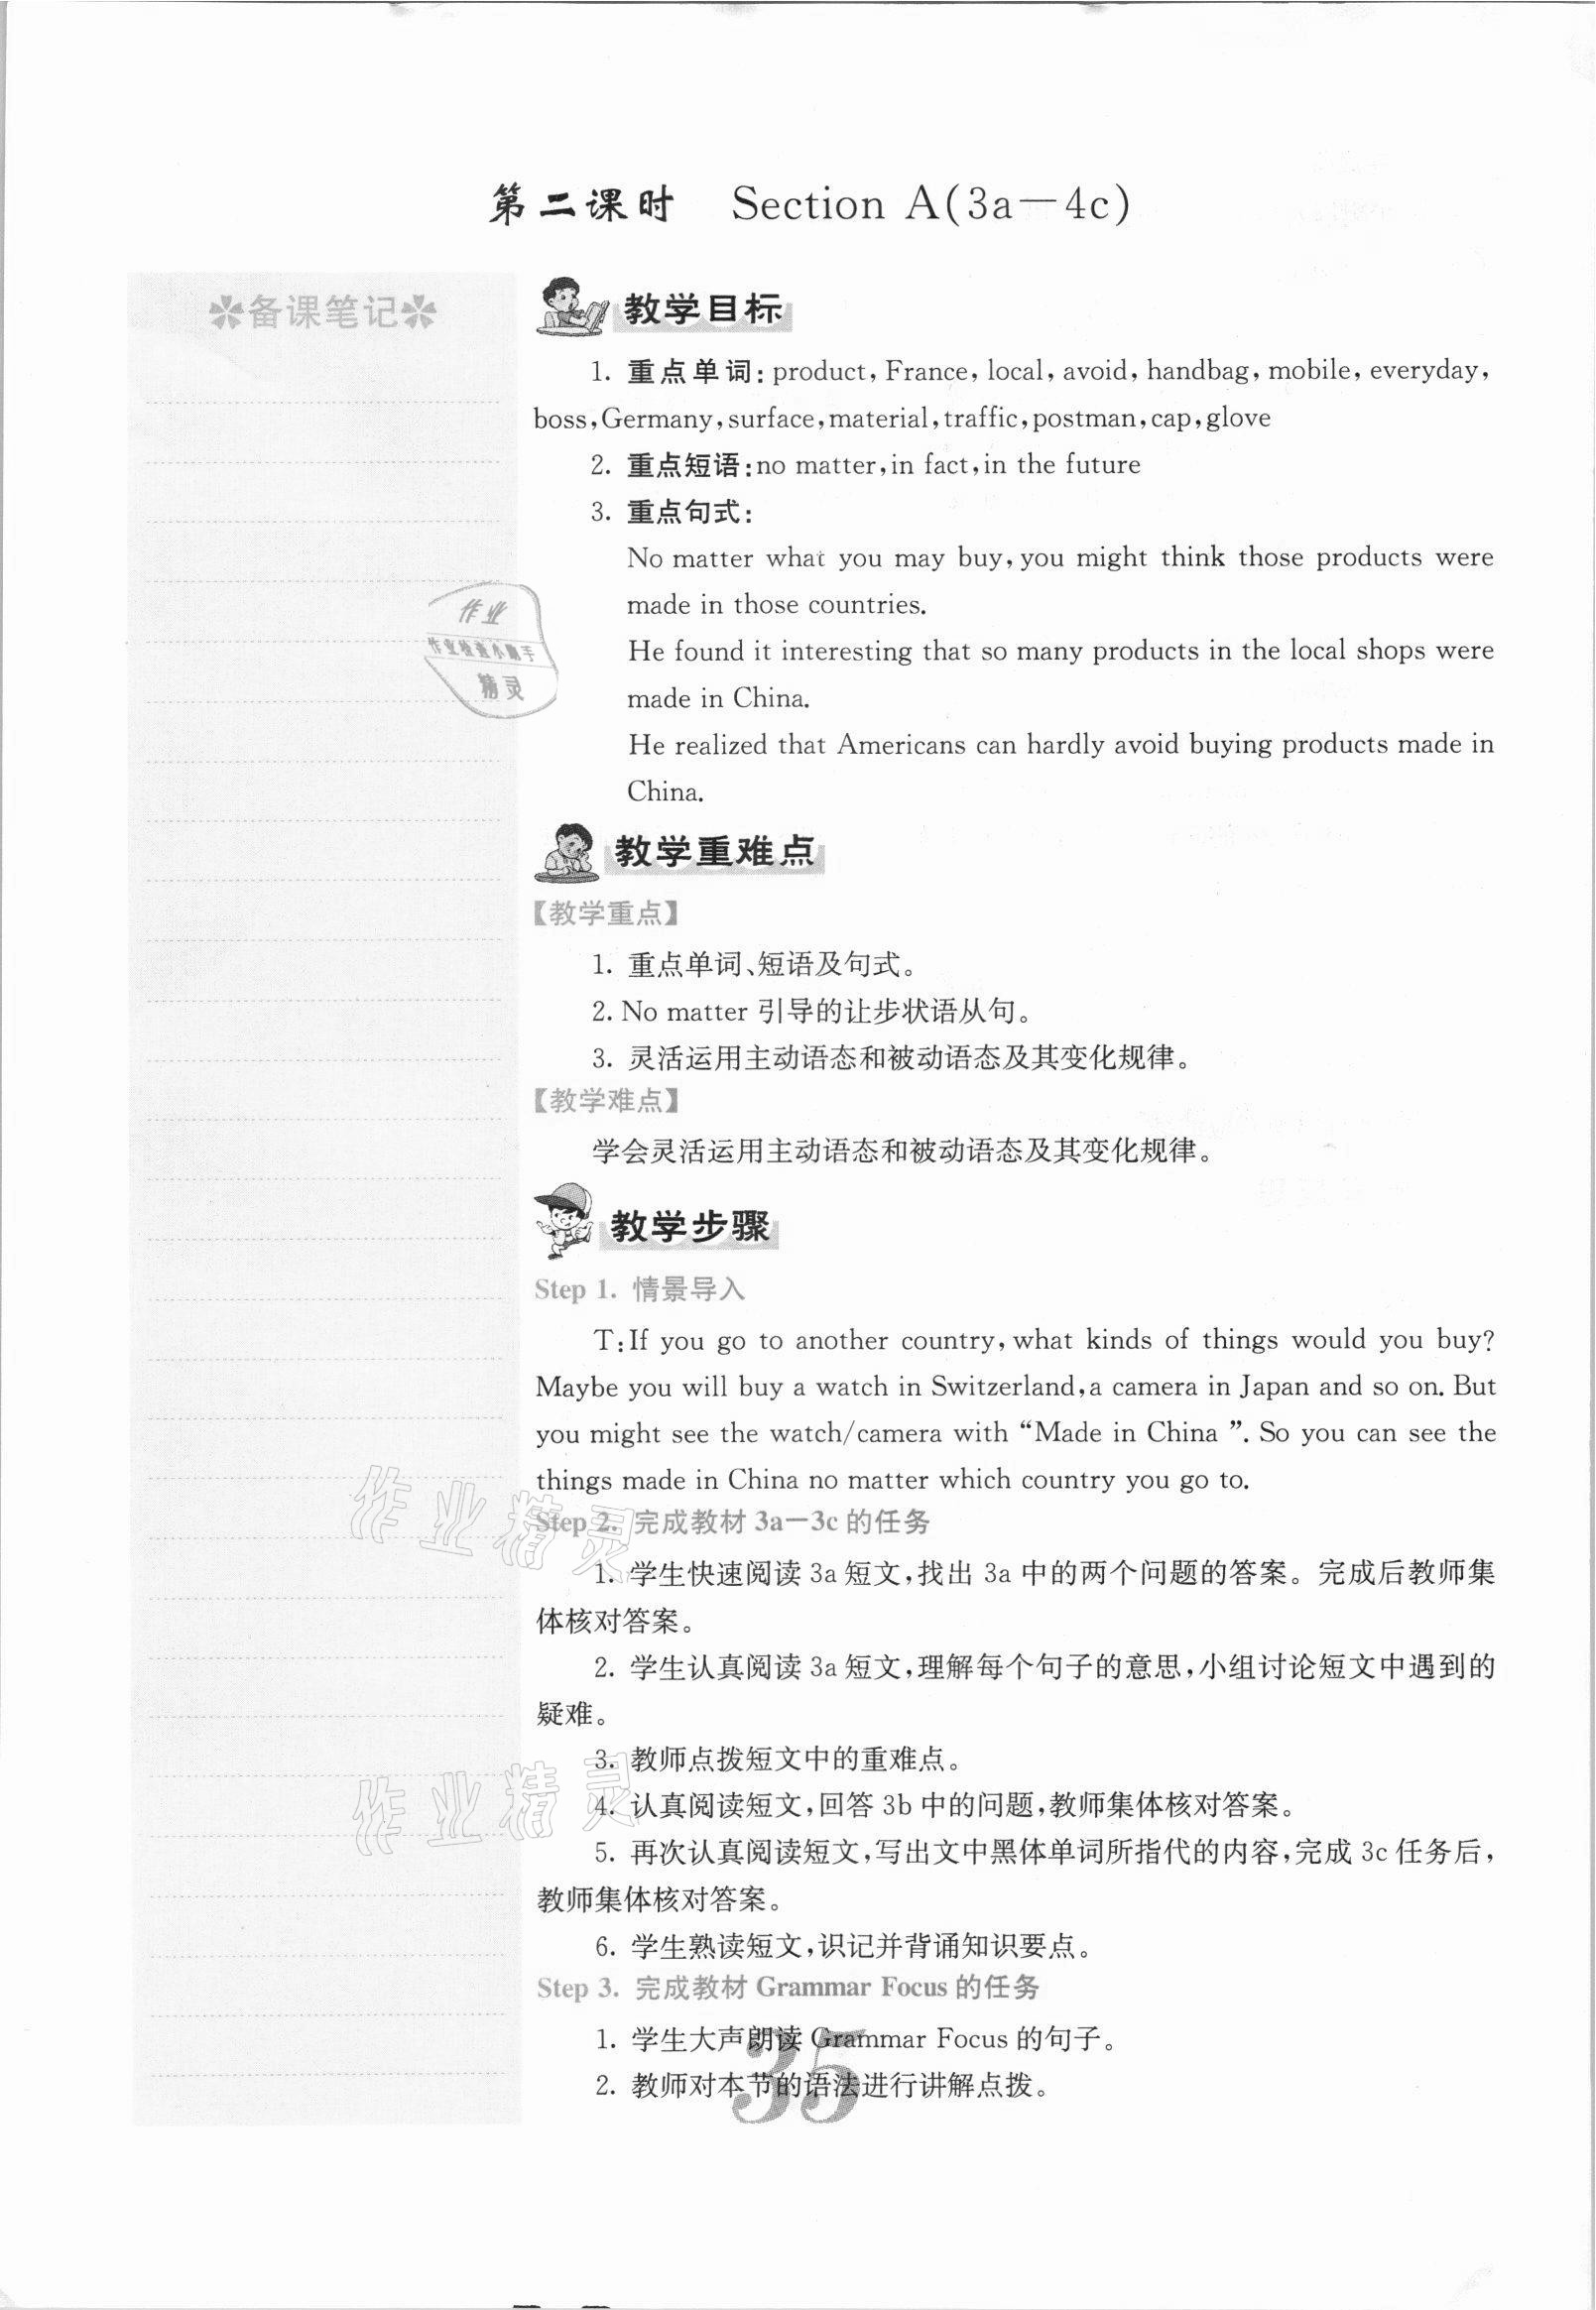 第二课时 Section A(3a—4c)
备课笔记
教学目标
1. 重点单词: product, France, local, avoid, handbag, mobile, everyday,
boss,Germany,surface,material,traffic,postman,cap,glove
2. 重点短语:no matter,in fact,in the future
3. 重点句式:
No matter what you may buy,you might think those products were
made in those countries.
He found it interesting that so many products in the local shops were
made in China.
He realized that Americans can hardly avoid buying products made in
China.
作业
作业检查小助手
精灵
教学重难点
【教学重点】
1. 重点单词、短语及句式。
2. No matter 引导的让步状语从句。
3. 灵活运用主动语态和被动语态及其变化规律。
【教学难点】
学会灵活运用主动语态和被动语态及其变化规律。
教学步骤
Step 1. 情景导入
T:If you go to another country,what kinds of things would you buy?
Maybe you will buy a watch in Switzerland,a camera in Japan and so on. But
you might see the watch/camera with “Made in China ”. So you can see the
things made in China no matter which country you go to.
作业精灵
Step 2. 完成教材 3a—3c 的任务
1. 学生快速阅读 3a 短文,找出 3a 中的两个问题的答案。完成后教师集
体核对答案。
2. 学生认真阅读 3a 短文,理解每个句子的意思,小组讨论短文中遇到的
疑难。
3. 教师点拨短文中的重难点。
作业精灵
4. 认真阅读短文,回答 3b 中的问题,教师集体核对答案。
5. 再次认真阅读短文,写出文中黑体单词所指代的内容,完成 3c 任务后,
教师集体核对答案。
6. 学生熟读短文,识记并背诵知识要点。
Step 3. 完成教材 Grammar Focus 的任务
1. 学生大声朗读 Grammar Focus 的句子。
2. 教师对本节的语法进行讲解点拨。
35